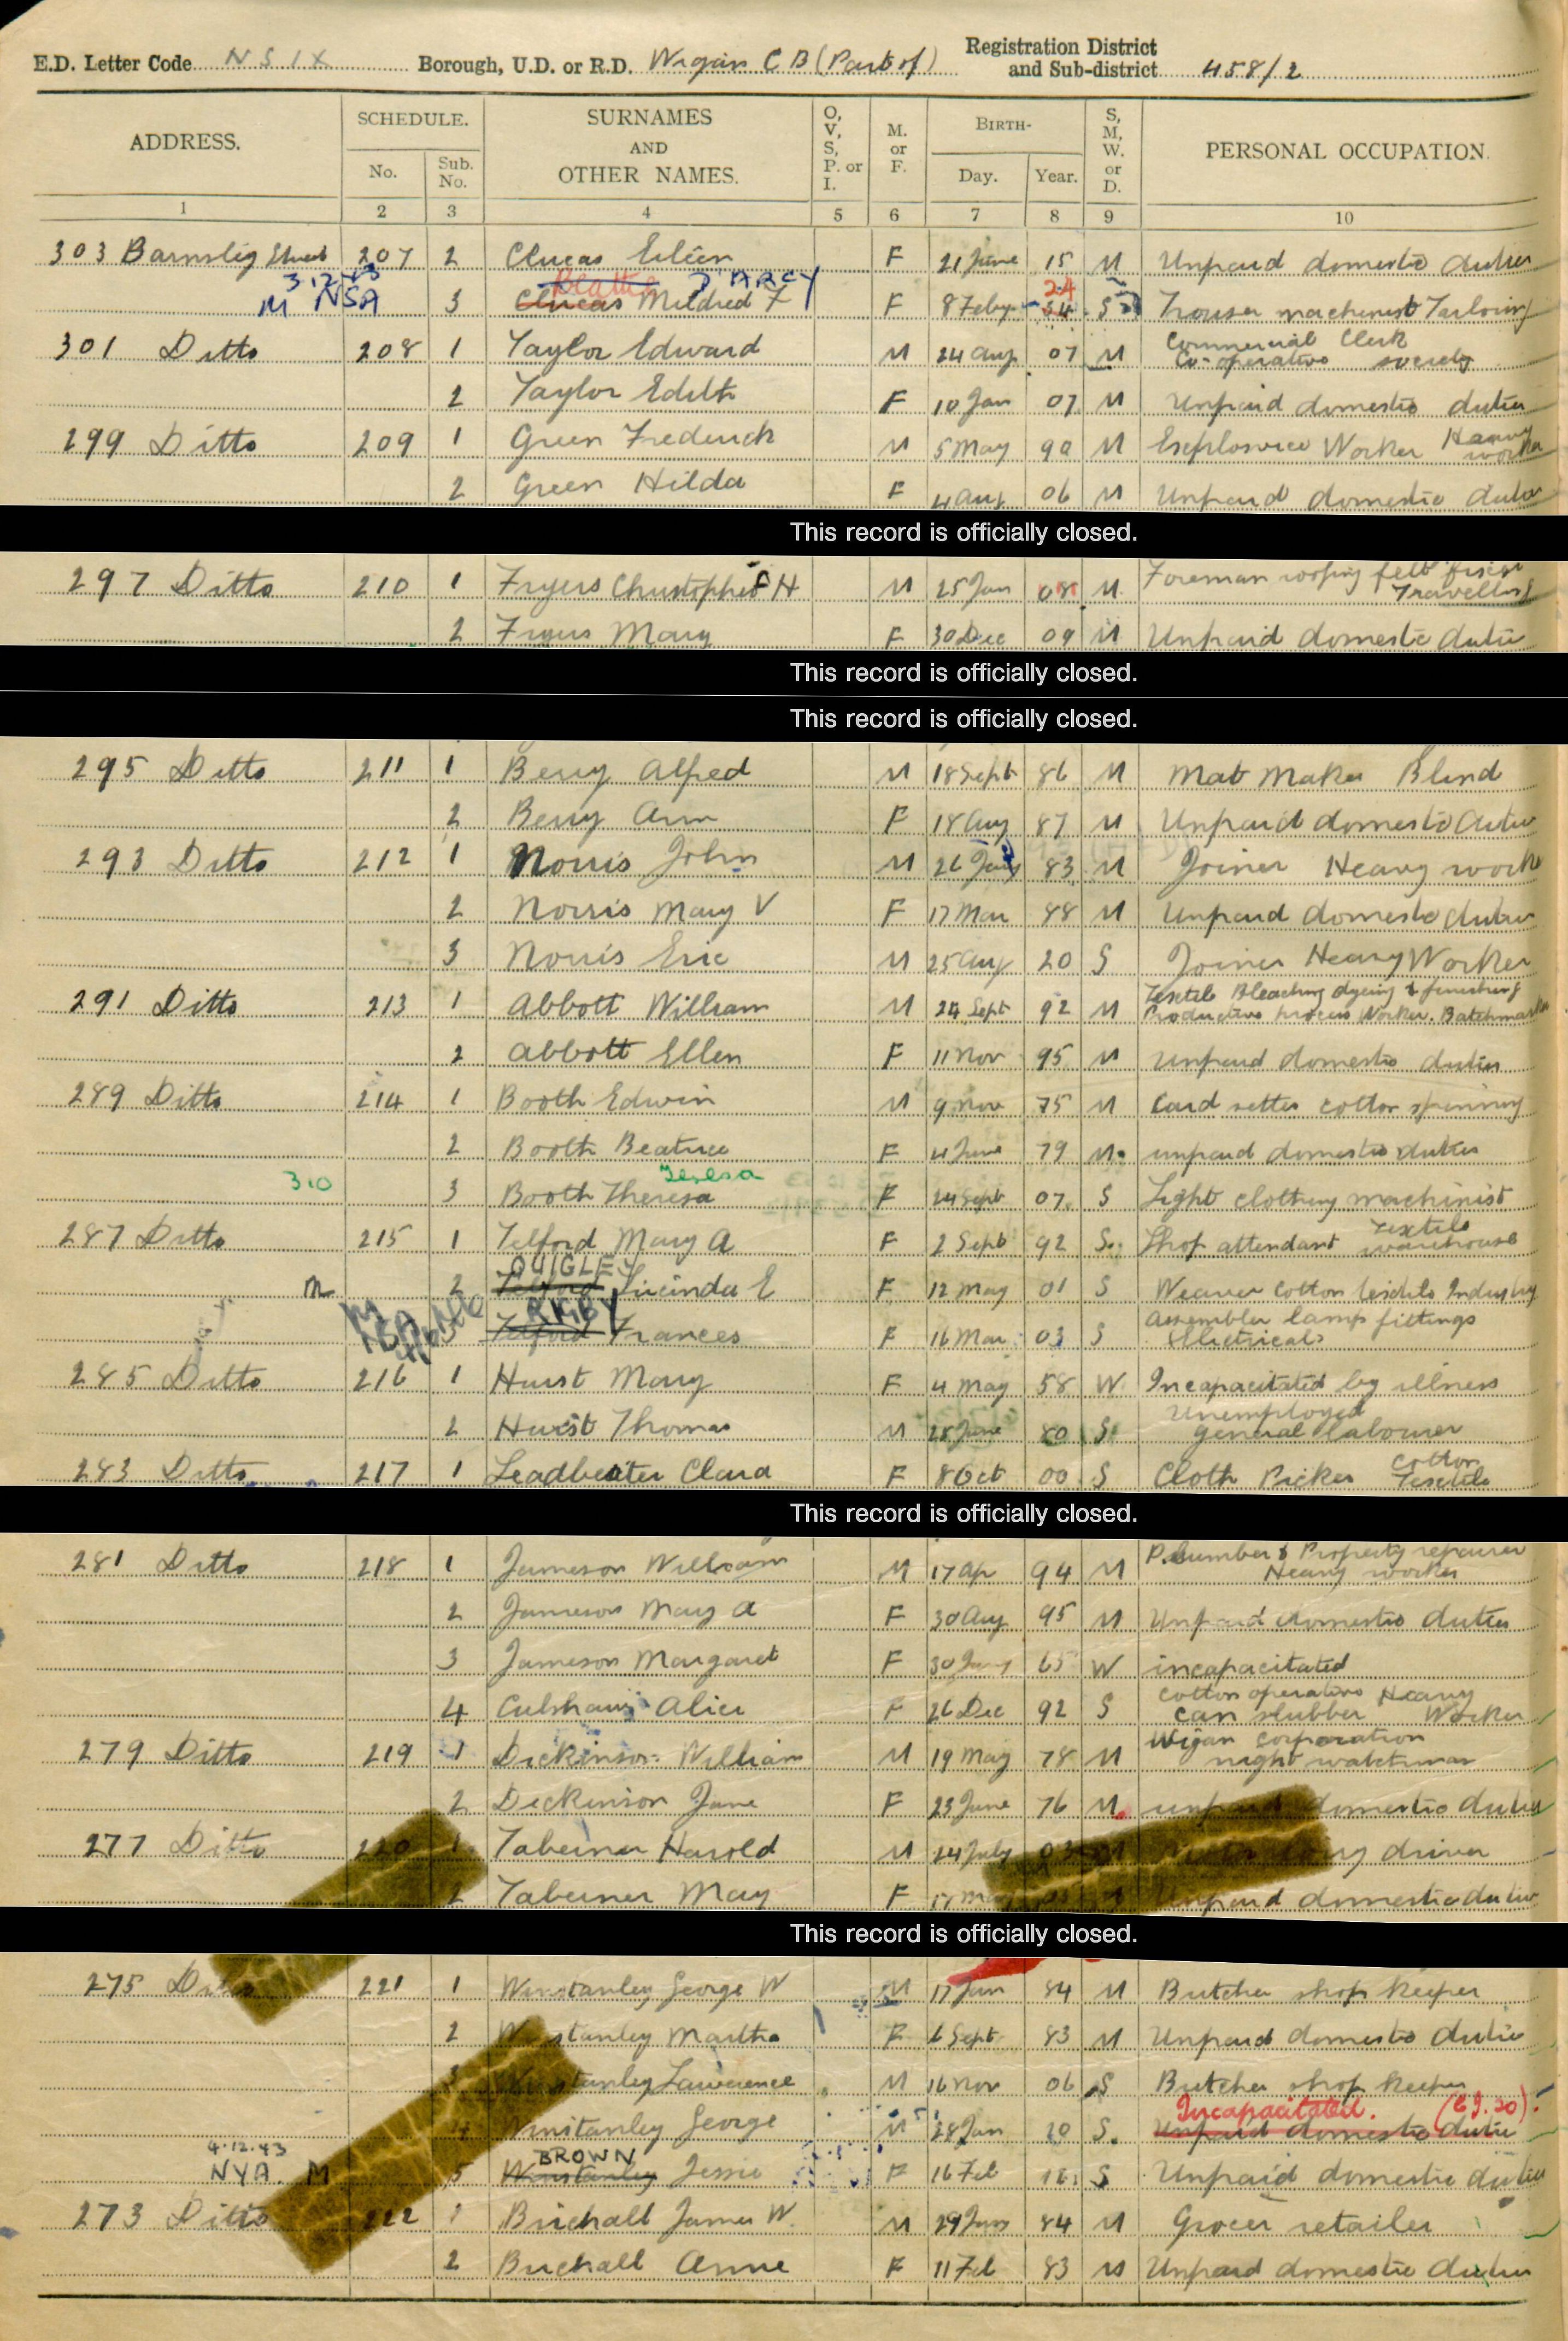 E.D. Letter Code NSIX Borough, U.D. or R.D. Wigan C B (Part of) Registration District and Sub-district 458/2
ADDRESS. SCHEDULE. No. Sub. No. SURNAMES AND OTHER NAMES. O, V, S, P. or I. M. or F. BIRTH- Day. Year. S, M, W. or D. PERSONAL OCCUPATION.
1 2 3 4 5 6 7 8 9 10
303 Barnsley Street 207 2 Clucas Eileen F 21 June 15 M Unpaid domestic duties
3.12.43 D'ARCY 24
M NSA 3 Clucas Mildred F 8 Feby S Trouser machinist Tailoring
301 Ditto 208 1 Taylor Edward M 24 Aug 07 M Commercial Clerk Co-operative society
2 Taylor Edith F 10 Jan 07 M Unpaid domestic duties
299 Ditto 209 1 Green Frederick M 5 May 90 M Explosive Worker Heavy worker
2 Green Hilda F 4 Aug 06 M Unpaid domestic duties
This record is officially closed.
297 Ditto 210 1 Fryers Christopher H M 25 Jan 08 M Foreman roofing felt fixer Travelling
2 Fryers Mary F 30 Dec 09 M Unpaid domestic duties
This record is officially closed.
This record is officially closed.
295 Ditto 211 1 Berry Alfred M 18 Sept 86 M Mat Maker Blind
2 Berry Ann F 18 Aug 87 M Unpaid domestic duties
293 Ditto 212 1 Norris John M 26 83 M Joiner Heavy work
2 Norris Mary V F 17 Mar 88 M Unpaid domestic duties
3 Norris Eric M 25 Aug 20 S Joiner Heavy Worker
291 Ditto 213 1 Abbott William M 24 Sept 92 M Textile Bleaching dyeing & finishing Productive process Worker. Batchmarker
2 Abbott Ellen F 11 Nov 95 M Unpaid domestic duties
289 Ditto 214 1 Booth Edwin M 9 Nov 75 M Card setter cotton spinning
2 Booth Beatrice F 4 June 79 M unpaid domestic duties
310 Teresa
3 Booth Theresa F 24 Sept 07 S Light clothing machinist
287 Ditto 215 1 Telford Mary A F 2 Sept 92 S Shop attendant Textile warehouse
QUIGLEY
M 2 Telford Lucinda E F 12 May 01 S Weaver cotton textile Industry
M NSA RIGBY
3 Telford Frances F 16 Mar 03 S Assembler lamp fittings Electrical
285 Ditto 216 1 Hurst Mary F 4 May 58 W Incapacitated by illness
2 Hurst Thomas M 28 June 80 S Unemployed general labourer
283 Ditto 217 1 Leadbeater Clara F 8 Oct 00 S Cloth Picker cotton Textile
This record is officially closed.
281 Ditto 218 1 Jameson William M 17 Ap 94 M Plumber & Property repairer Heavy worker
2 Jameson Mary A F 30 Aug 95 M Unpaid domestic duties
3 Jameson Margaret F 30 65 W incapacitated
4 Culshaw Alice F 26 Dec 92 S Cotton operative Heavy can slubber Worker
279 Ditto 219 1 Dickinson William M 19 May 78 M Wigan Corporation night watchman
2 Dickinson Jane F 23 June 76 M unpaid domestic duties
277 Ditto 220 1 Taberner Harold M 24 July 03 M driver
2 Taberner May F Unpaid domestic duties
This record is officially closed.
275 Ditto 221 1 Winstanley George W M 17 Jan 84 M Butcher shop keeper
2 Winstanley Martha F 6 Sept 83 M Unpaid domestic duties
3 Winstanley Lawrence M 16 Nov 06 S Butcher shop keeper
Incapacitated. (E.J.30).
4 Winstanley George M 28 Jan 10 S. Unpaid domestic duties
4.12.43 BROWN
NYA. M 5 Winstanley Jessie F 16 Feb S Unpaid domestic duties
273 Ditto 222 1 Birchall James W. M 29 84 M Grocer retailer
2 Birchall Anne F 11 Feb 83 M Unpaid domestic duties